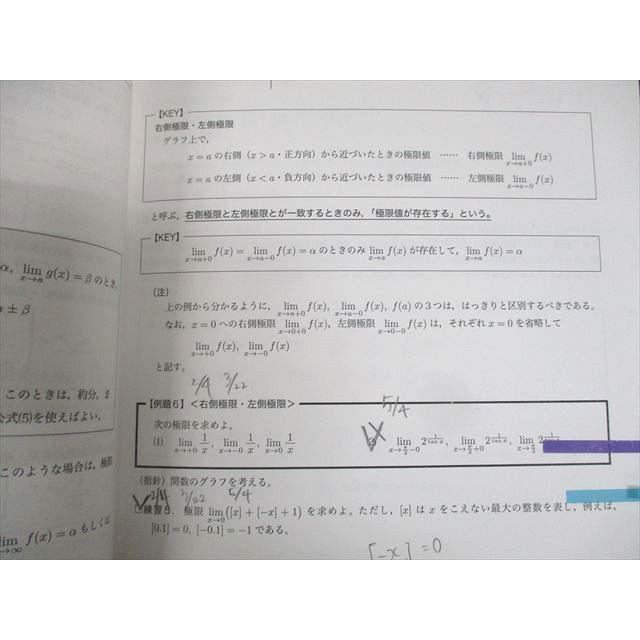 【KEY】
右側極限・左側極限
グラフ上で,
x = a の右側 (x > a・正方向) から近づいたときの極限値 …… 右側極限 lim_{x→a+0} f(x)
x = a の左側 (x < a・負方向) から近づいたときの極限値 …… 左側極限 lim_{x→a-0} f(x)
と呼ぶ。右側極限と左側極限とが一致するときのみ,「極限値が存在する」という。
【KEY】
lim_{x→a+0} f(x) = lim_{x→a-0} f(x) = α のときのみ lim_{x→a} f(x) が存在して, lim_{x→a} f(x) = α
(注)
上の例から分かるように, lim_{x→a+0} f(x), lim_{x→a-0} f(x), f(a) の3つは, はっきりと区別するべきである。
なお, x = 0 への右側極限 lim_{x→0+0} f(x), 左側極限 lim_{x→0-0} f(x) は, それぞれ x = 0 を省略して
lim_{x→+0} f(x), lim_{x→-0} f(x)
と記す。
2/4 3/22
5/4
【例題6】<右側極限・左側極限>
次の極限を求めよ。
(1) lim_{x→+0} 1/x, lim_{x→-0} 1/x, lim_{x→0} 1/x
lim_{x→π/2-0} 2^{1/tan x}, lim_{x→π/2+0} 2^{1/tan x}, lim_{x→π/2} 2
(指針) 関数のグラフを考える。
2/4 3/22 5/4
練習9. 極限 lim_{x→0} ([x] + [-x] + 1) を求めよ。ただし, [x] は x をこえない最大の整数を表し, 例えば,
[0.1] = 0, [-0.1] = -1 である。
[-x] = 0
α, lim_{x→a} g(x) = β のとき,
± β
このときは, 約分,
公式(5)を使えばよい。
このような場合は, 極限
f(x) = α もしくは